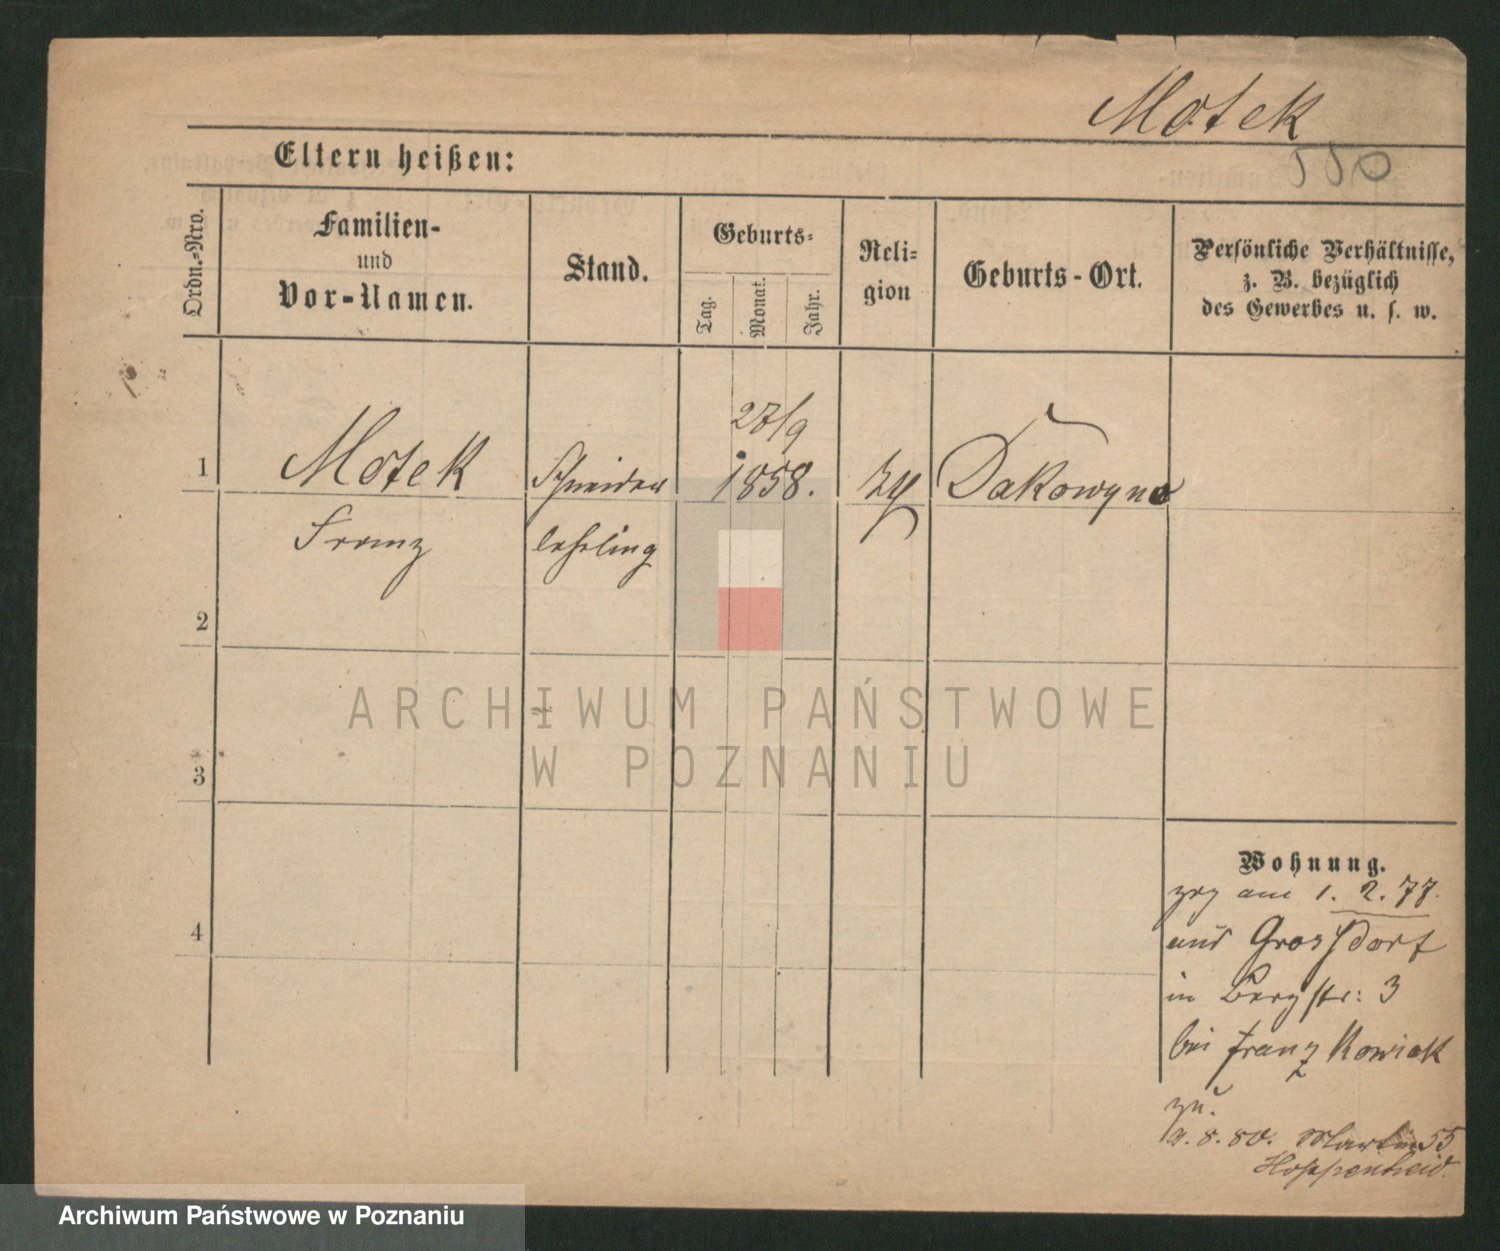 Motek
550
Eltern heißen:
Ordn.-Nro.
Familien-
und
Vor-Namen.
Stand.
Geburts-
Tag.
Monat.
Jahr.
Reli-
gion
Geburts-Ort.
Persönliche Verhältnisse,
z. B. bezüglich
des Gewerbes u. s. w.
27/9
1 Motek Schneider 1858. Dakowyne
Franz lehrling
2
3
4
ARCHIWUM PAŃSTWOWE
W POZNANIU
Wohnung.
zog am 1. 2. 77.
aus Grossdorf
in Bergstr: 3
bei Franz Kowiak
zu.
8. 80. Martin 55
Hoppenheid.
Archiwum Państwowe w Poznaniu